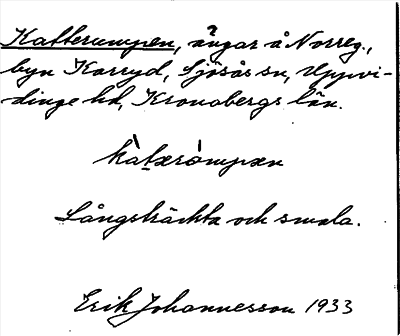 Katterumpen, ängar å Norreg.,
byn Karryd, Sjösås sn, Uppvi-
dinge hd, Kronobergs län.
kàtærómpæn
Långsträckta och smala.
Erik Johannesson 1933